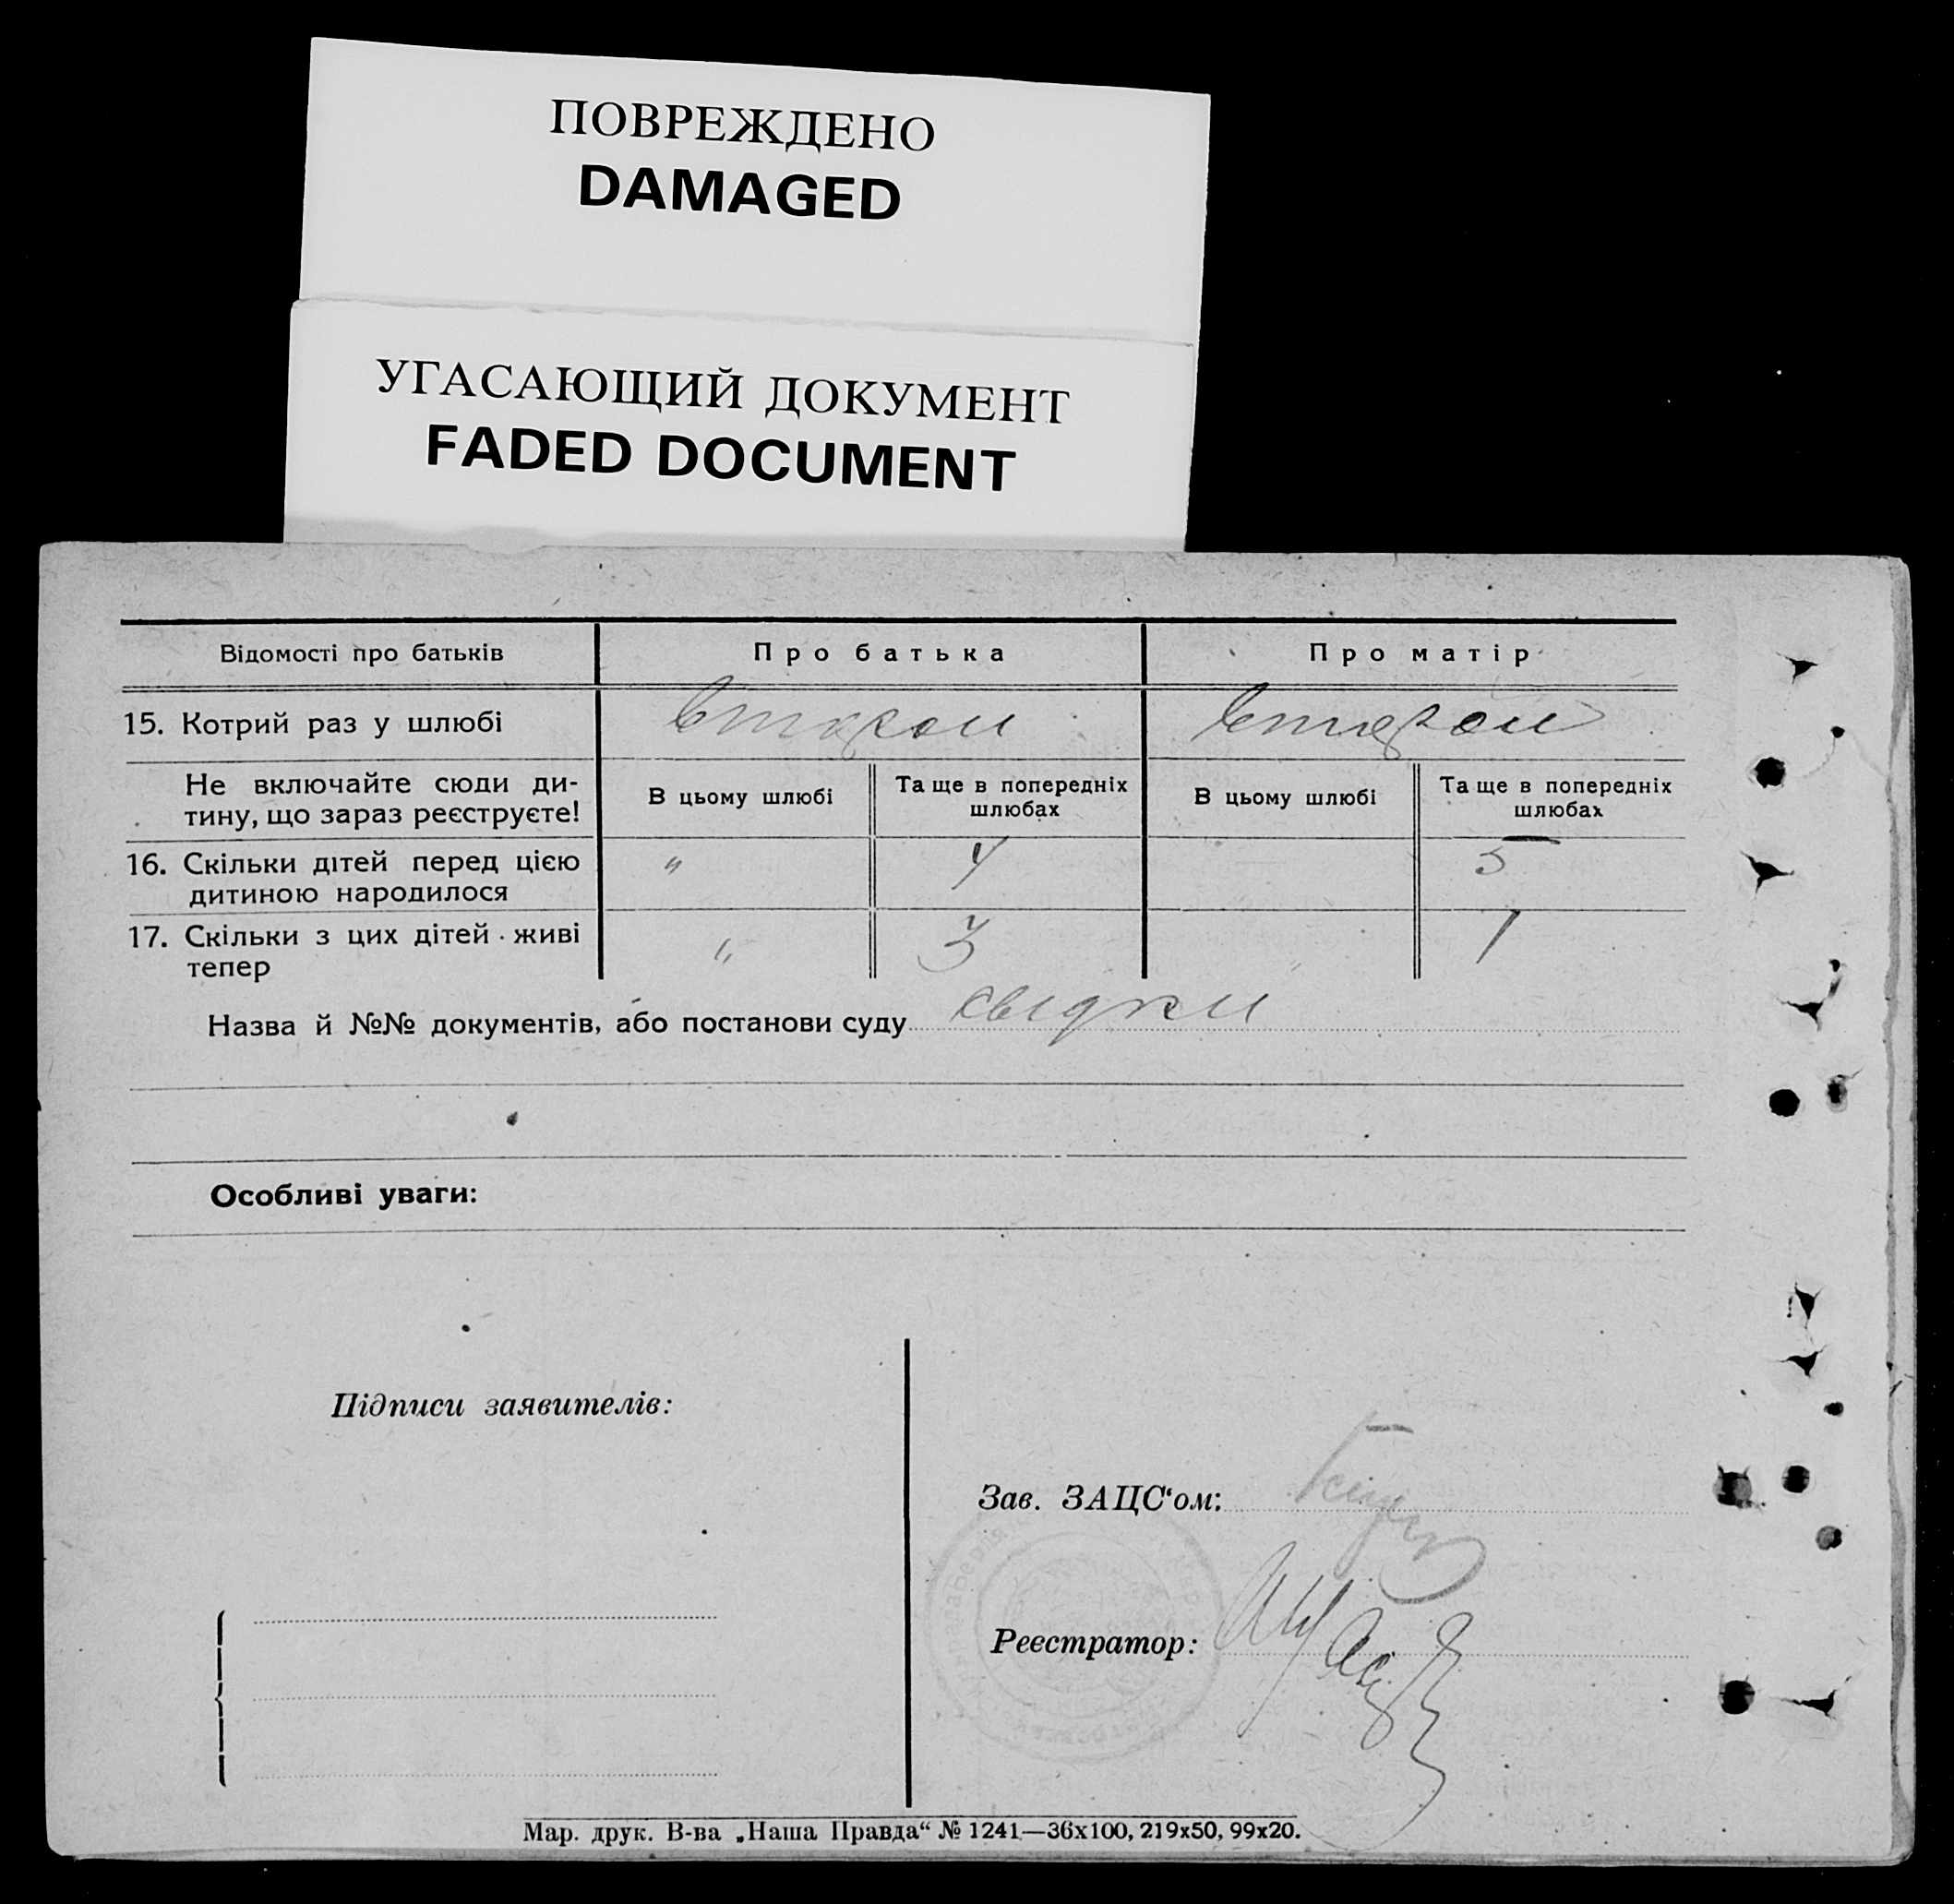 ПОВРЕЖДЕНО
DAMAGED
УГАСАЮЩИЙ ДОКУМЕНТ
FADED DOCUMENT
Відомості про батьків Про батька Про матір
15. Котрий раз у шлюбі второй второй
Не включайте сюди ди-
тину, що зараз реєструєте!
В цьому шлюбі Та ще в попередніх
шлюбах
В цьому шлюбі Та ще в попередніх
шлюбах
16. Скільки дітей перед цією
дитиною народилося
" 4 5
17. Скільки з цих дітей живі
тепер
" 3 1
Назва й №№ документів, або постанови суду свідки
Особливі уваги:
Підписи заявителів:
Зав. ЗАЦС‘ом:
Реєстратор:
Мар. друк. В-ва „Наша Правда“ № 1241—36х100, 219х50, 99х20.